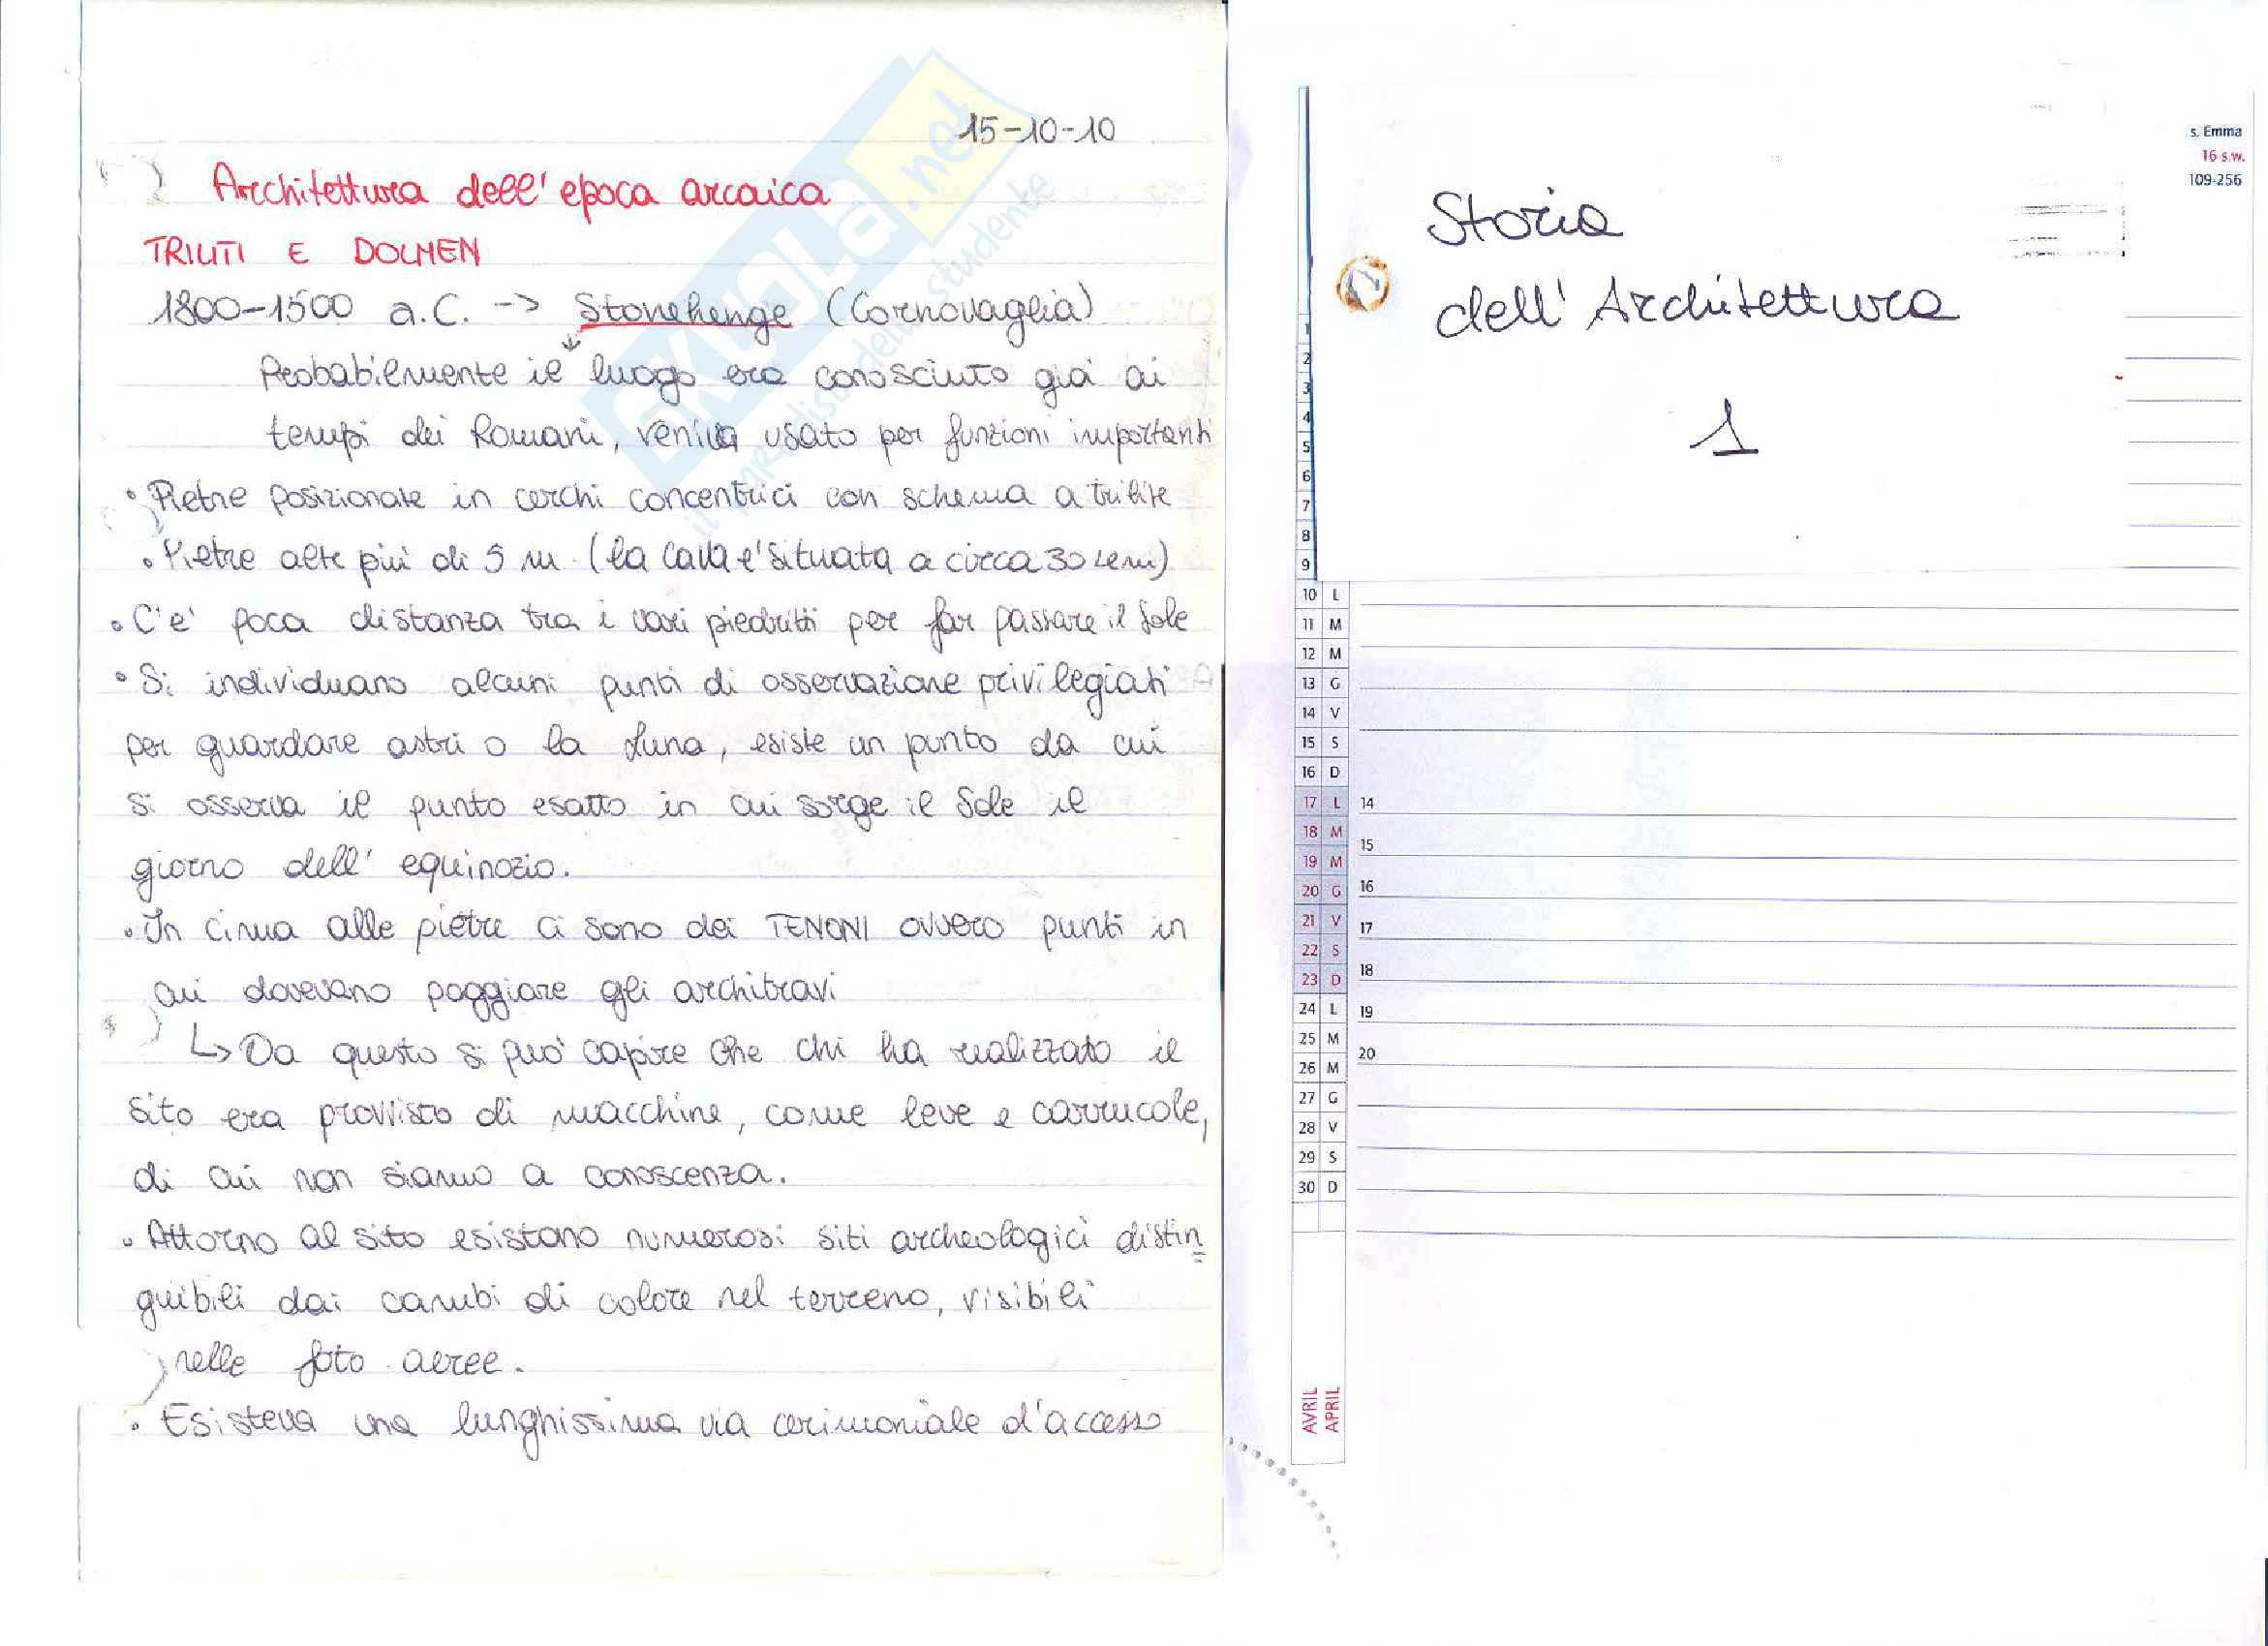 15-10-10
Architettura dell'epoca arcaica
TRILITI E DOLMEN
1800-1500 a.C. -> Stonehenge (Cornovaglia)
Probabilmente il luogo era conosciuto già ai
tempi dei Romani, veniva usato per funzioni importanti
• Pietre posizionate in cerchi concentrici con schema a trilite
• Pietre alte più di 5 m (la cava e' situata a circa 30 km)
• C'e' poca distanza tra i vari piedritti per far passare il Sole
• Si individuano alcuni punti di osservazione privilegiati
per guardare astri o la Luna, esiste un punto da cui
si osserva il punto esatto in cui sorge il Sole il
giorno dell' equinozio.
• In cima alle pietre ci sono dei TENONI ovvero punti in
cui dovevano poggiare gli architravi
↳ Da questo si può capire che chi ha realizzato il
sito era provvisto di macchine, come leve e carrucole,
di cui non siamo a conoscenza.
• Attorno al sito esistono numerosi siti archeologici distin
guibili dai cambi di colore nel terreno, visibili
nelle foto aeree.
• Esisteva una lunghissima via cerimoniale d'accesso
SKUOLA.net
il paradiso dello studente
s. Emma
16 s.w.
109-256
Storia
dell' Architettura
1
1
2
3
4
5
6
7
8
9
10 L
11 M
12 M
13 G
14 V
15 S
16 D
17 L 14
18 M
15
19 M
20 G 16
21 V
17
22 S
23 D 18
24 L 19
25 M
26 M 20
27 G
28 V
29 S
30 D
AVRIL
APRIL